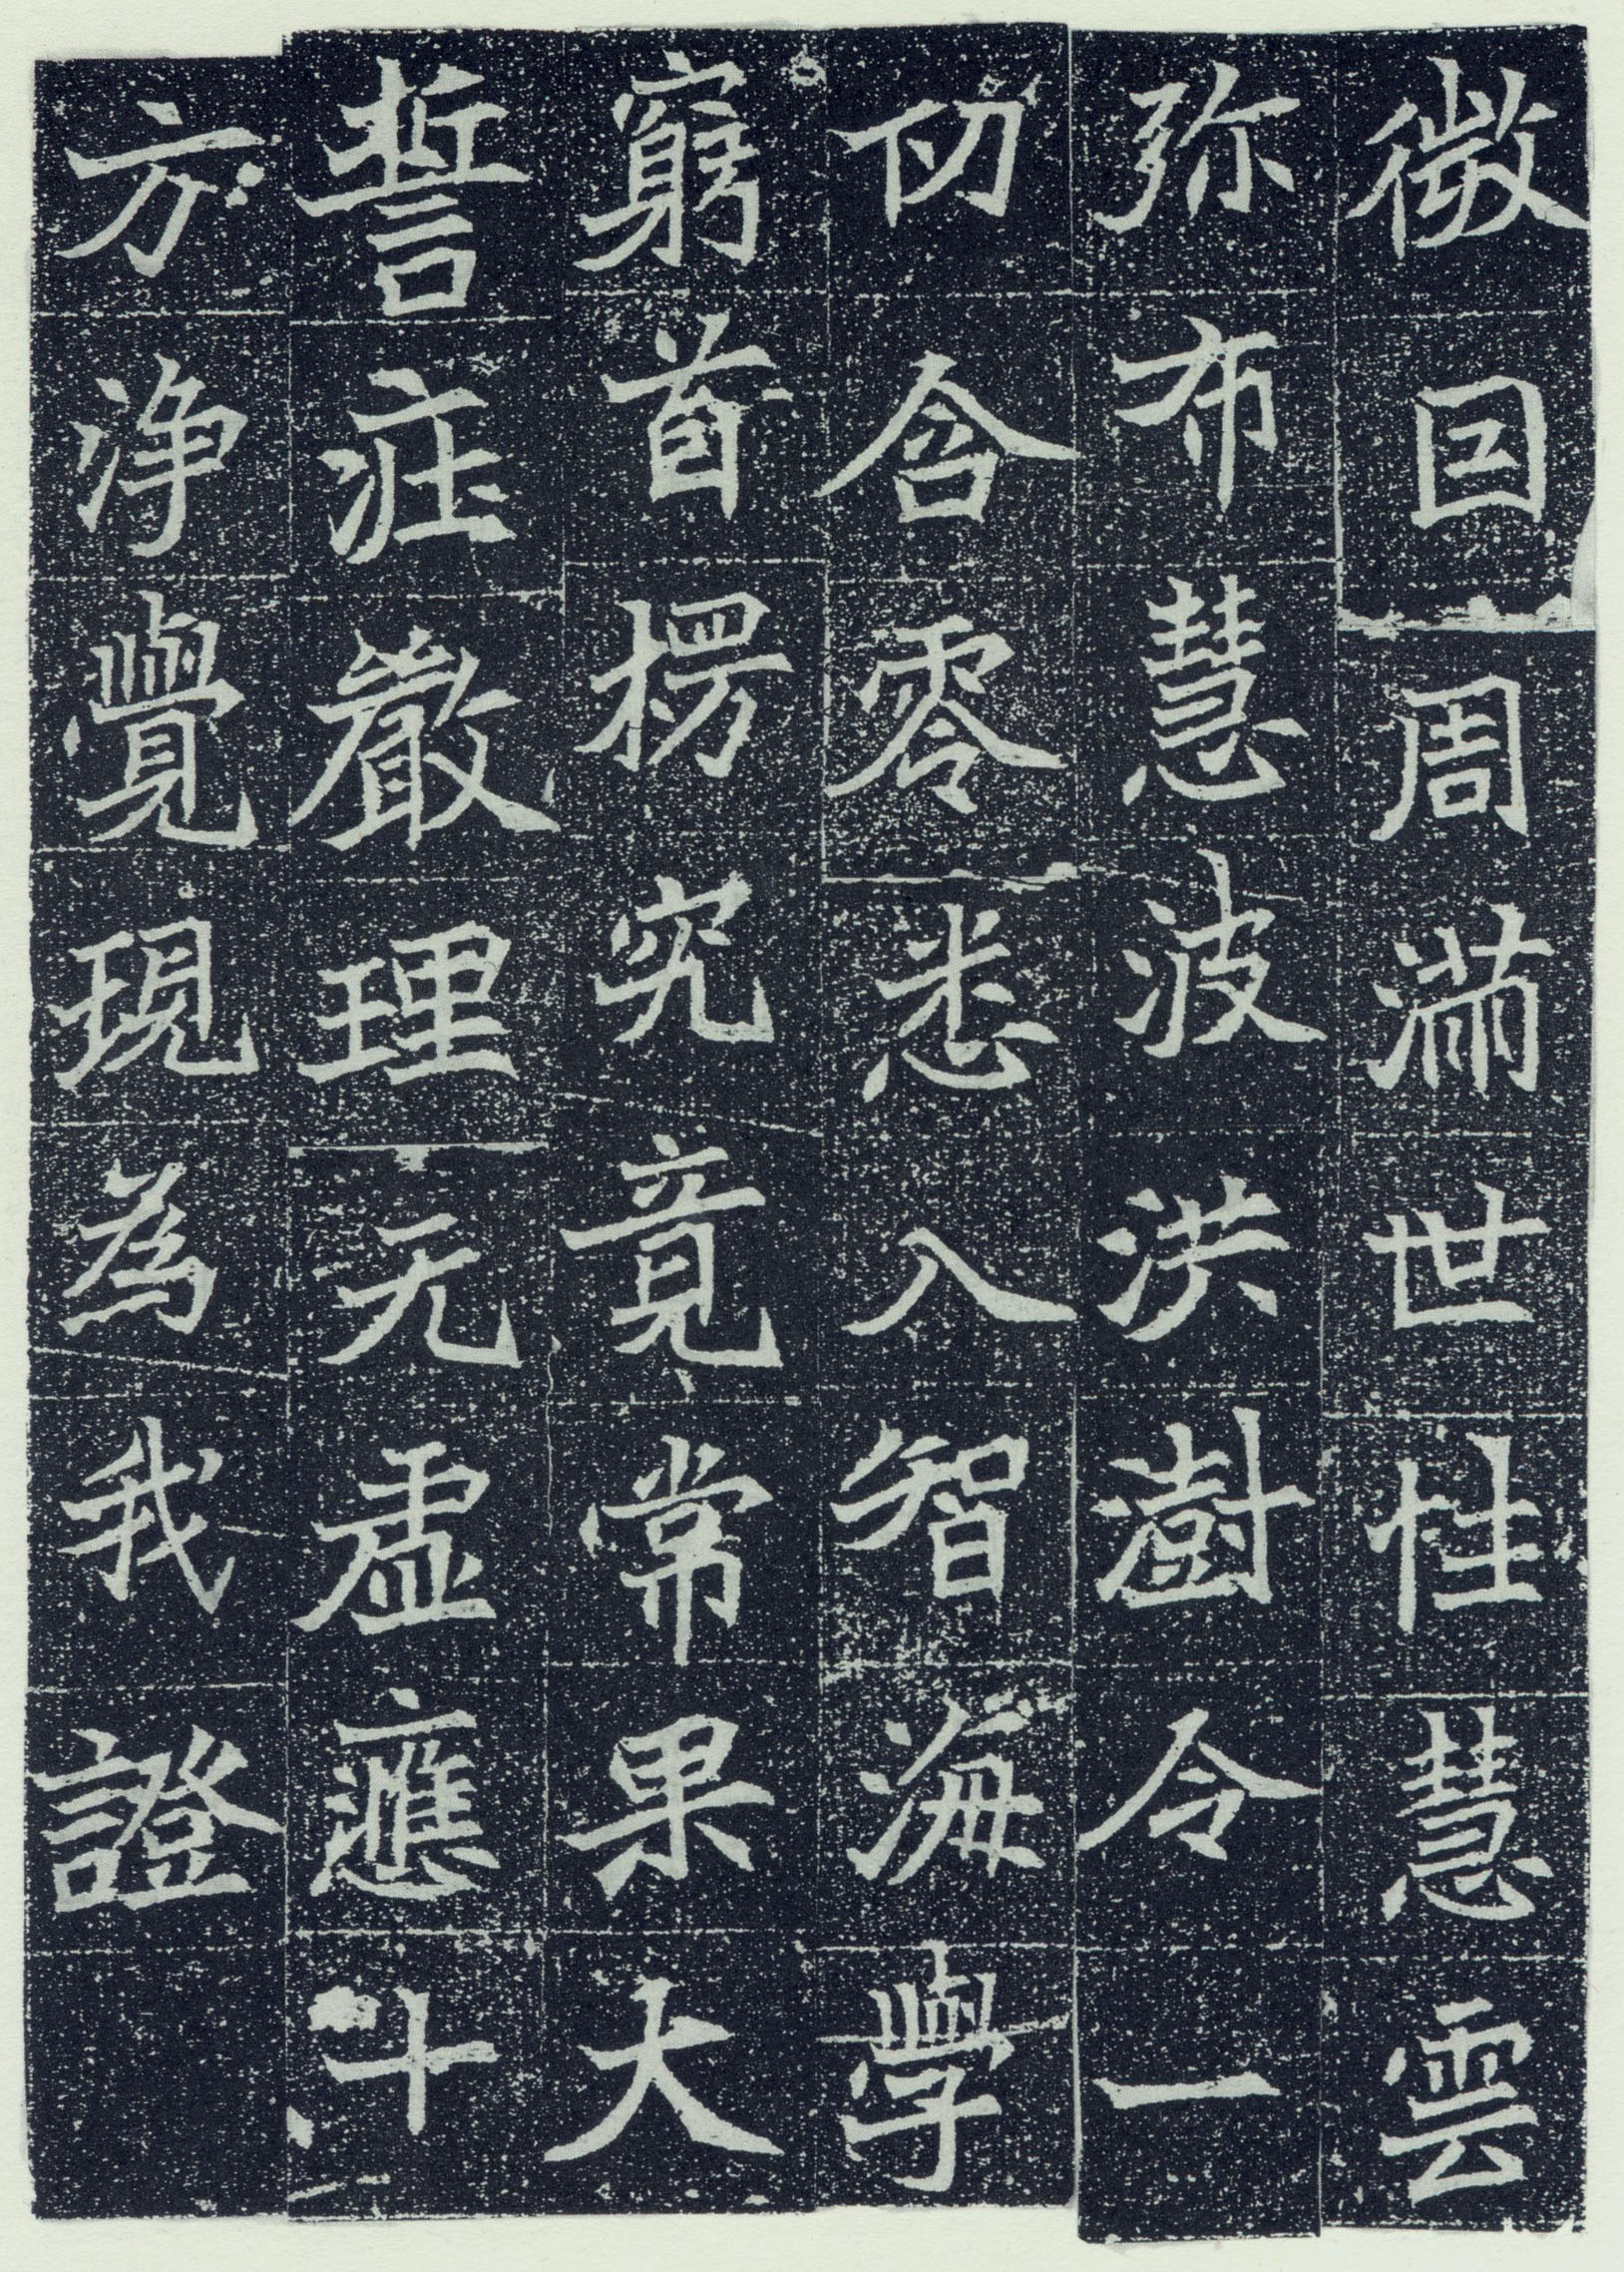 微因周滿世性慧雲
弥布慧波洪澍令一
切含零悉入智海學
窮首楞究竟常果大
誓莊嚴理无虛應十
方淨覺現為我證